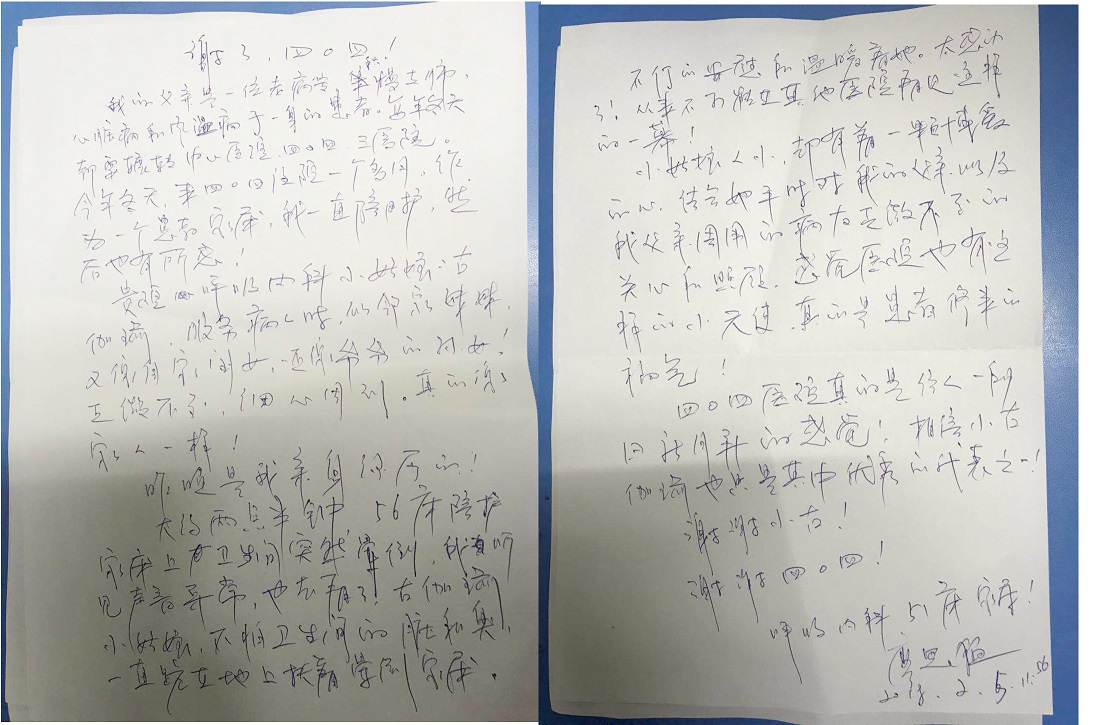 谢谢了，四〇四！
我的父亲是一位老病号，集慢支肺、
心脏病和风湿病于一身的患者。每年冬天
都要辗转中心医院、四〇四、三医院。
今年冬天，来四〇四住院一个多月，作
为一个患者家属，我一直陪护，然
后也有所感！
贵院呼吸内科小姑娘：古
伽瑜，服务病人时，似邻家妹妹，
又像自家闺女，还像爷爷的孙女！
无微不至，细心周到。真的像
家人一样！
昨晚是我亲身经历的！
大约两点半钟，56床陪护
家属上卫生间突然晕倒，我听
见声音异常，也去看了！古伽瑜
小姑娘，不怕卫生间的脏和臭，
一直跪在地上扶着晕倒家属，
不停的安慰和温暖着她。太感动
了！从来不在其他医院看见这样
的一幕！
小姑娘人小，却有着一颗博爱
的心，结合她平时对我的父亲以及
我父亲周围的病友无微不至的
关心和照顾，感觉医院也有这
样的小天使，真的是患者修来的
福气！
四〇四医院真的是给人一种
日新月异的感觉！相信小古
伽瑜也只是其中优秀的代表之一！
谢谢小古！
谢谢四〇四！
呼吸内科51床家属！
2.5.11:56